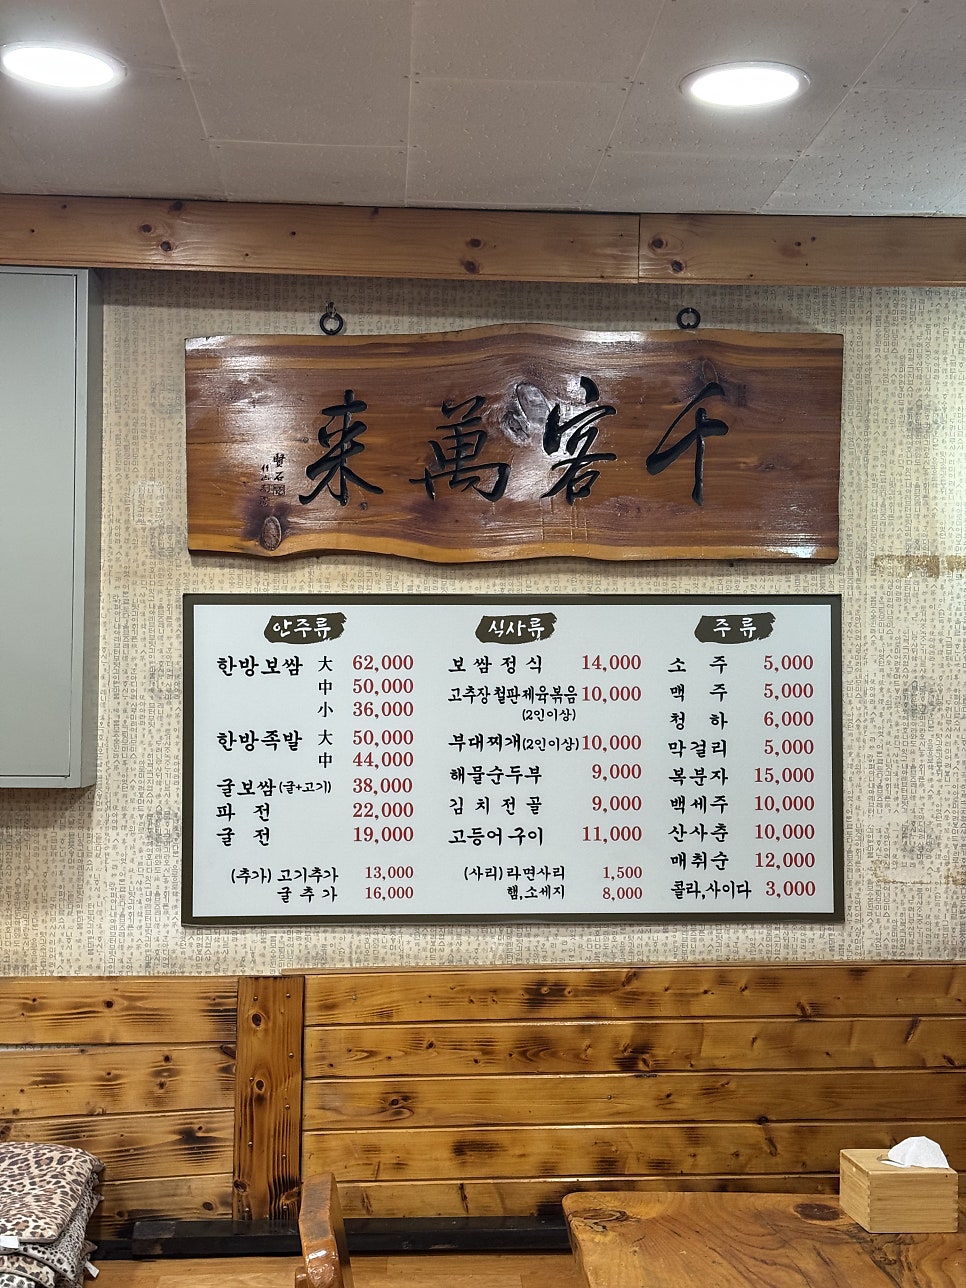 千客萬來
賢石
안주류
한방보쌈 大 62,000
中 50,000
小 36,000
한방족발 大 50,000
中 44,000
굴보쌈(굴+고기) 38,000
파 전 22,000
굴 전 19,000
(추가) 고기추가 13,000
굴추가 16,000
식사류
보쌈정식 14,000
고추장철판제육볶음 10,000
(2인이상)
부대찌개(2인이상) 10,000
해물순두부 9,000
김치전골 9,000
고등어구이 11,000
(사리) 라면사리 1,500
햄,소세지 8,000
주류
소주 5,000
맥주 5,000
청하 6,000
막걸리 5,000
복분자 15,000
백세주 10,000
산사춘 10,000
매취순 12,000
콜라,사이다 3,000